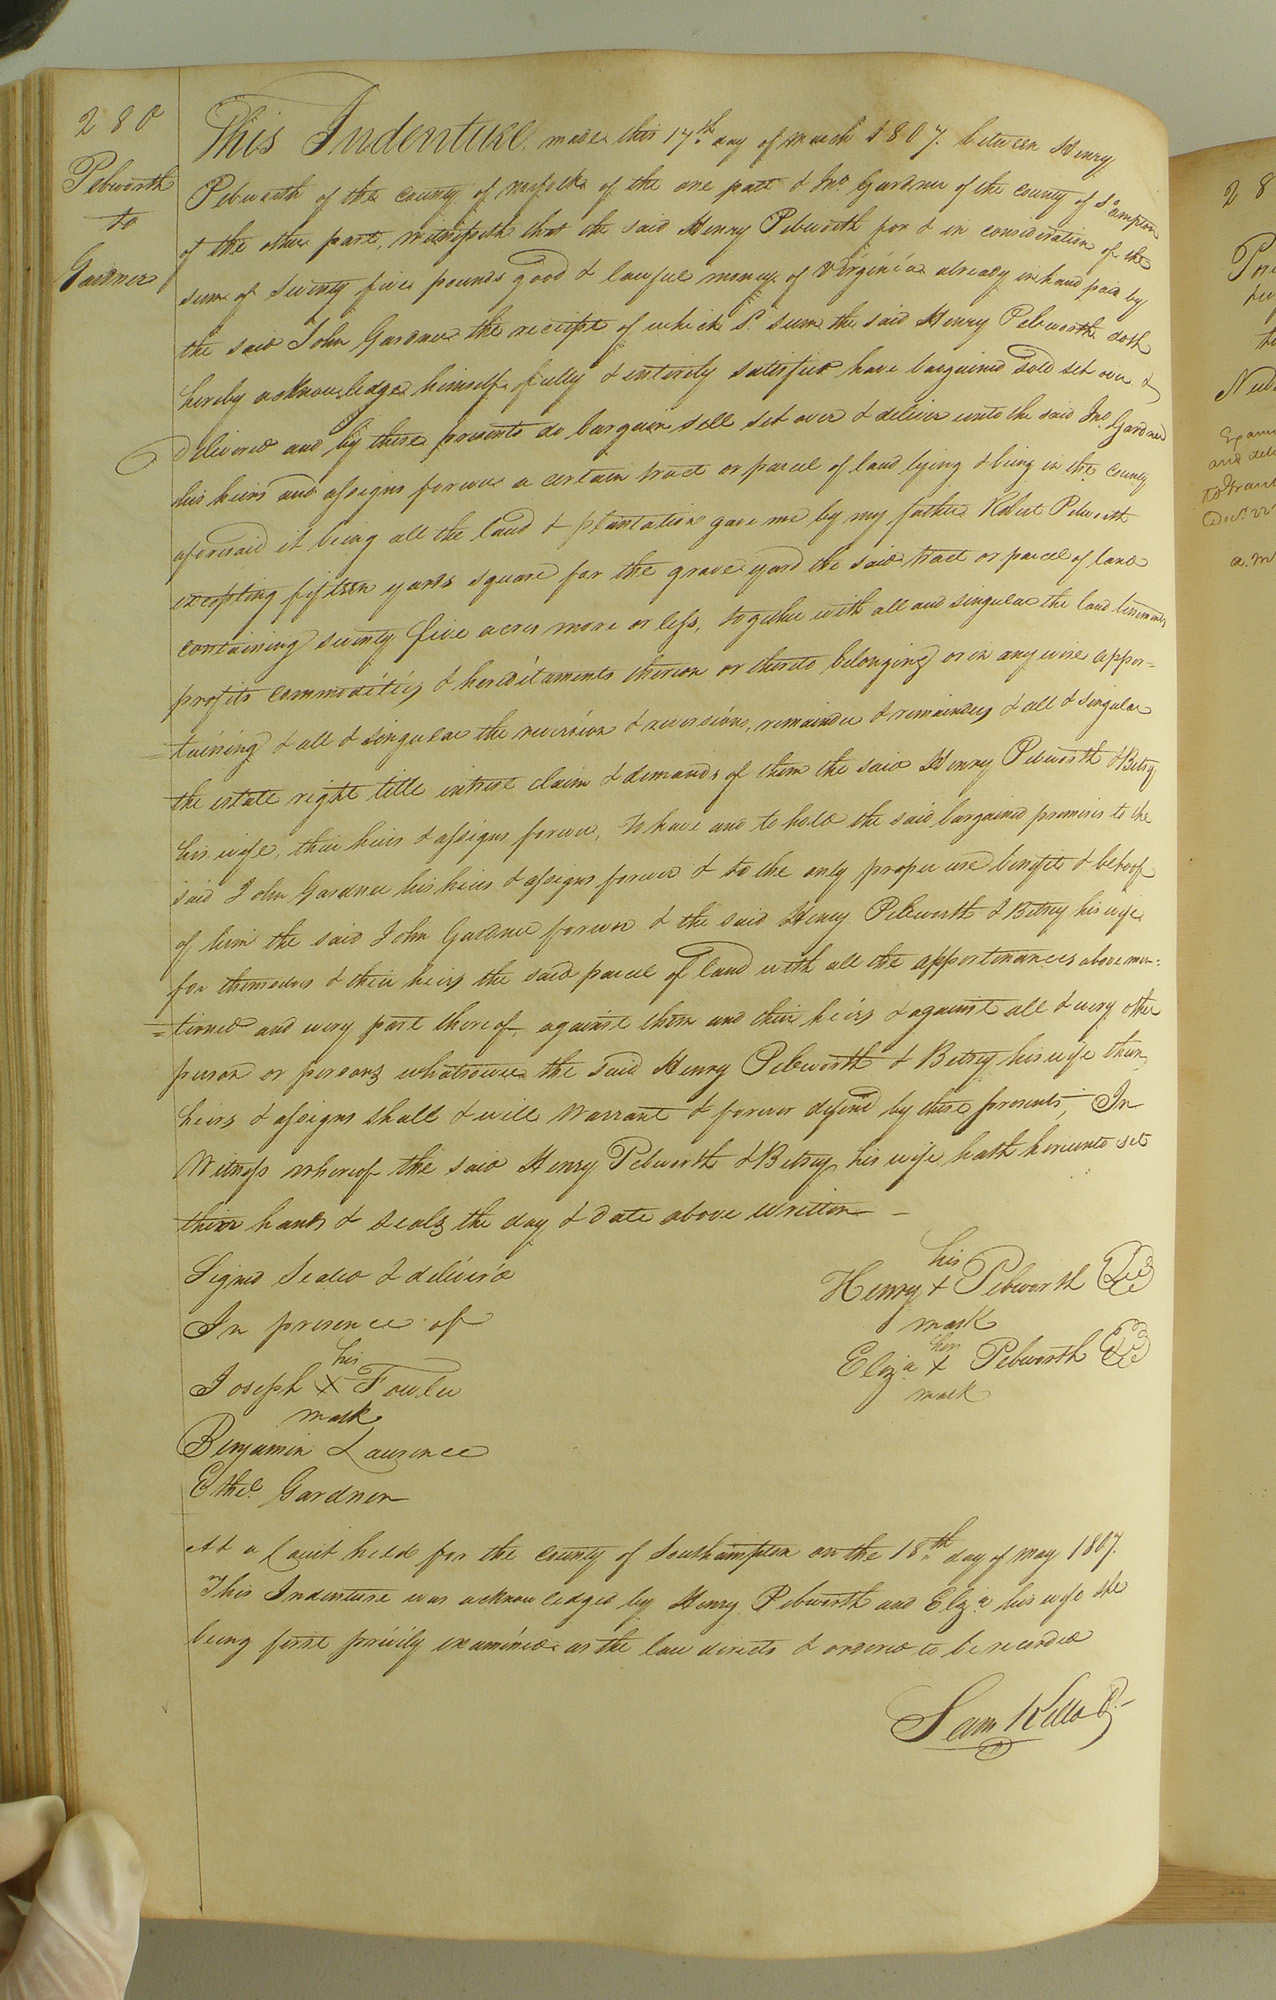 280
Pebworth
to
Gardner
This Indenture made this 17th day of March 1807. between Henry
Pebworth of the county of Norfolk of the one part & Jno Gardner of the county of So ampton
of the other part, Witnesseth that the said Henry Pebworth for & in consideration of the
sum of Seventy five pounds good & lawful money of Virginia already in hand paid by
the said John Gardner the receipt of which sd. sum the said Henry Pebworth doth
hereby acknowledge himself fully & entirely satisfied have bargained sold set over &
delivered and by these presents do bargain sell set over & deliver unto the said Jno. Gardner
his heirs and assigns forever a certain tract or parcel of land lying & being in the county
aforesaid it being all the land & plantation gave me by my father Robert Pebworth
excepting fifteen yards square for the grave yard the said tract or parcel of land
containing seventy five acres more or less, together with all and singular the land tenements
profits commodities & hereditaments thereon or thereto belonging or in any wise apper=
=taining & all & singular the reversion & reversions, remainder & remainders & all & singular
the estate right title intrest claim & demands of them the said Henry Pebworth & Betsy
his wife, their heirs & assigns forever, To have and to hold the said bargained premises to the
said John Gardner his heirs & assigns forever & to the only proper use benefit & behoof
of him the said John Gardner forever & the said Henry Pebworth & Betsey his wife
for themselves & their heirs the said parcel of land with all the appertinances above men=
=tioned and every part thereof against them and their heirs & against all & every other
person or persons whatsoever the said Henry Pebworth & Betsey his wife their
heirs & assigns shall & will Warrant & forever defend by these presents, In
Witness whereof the said Henry Pebworth & Betsey his wife hath hereunto set
their hands & seals the day & date above written
Signed Sealed & deliver'd
In presence of
his
Joseph X Fowler
mark
Benjamin Laurence
Ethd. Gardner
his
Henry + Pebworth
mark
her
Eliza X Pebworth
mark
At a Court held for the county of Southampton on the 18th. day of May 1807.
This Indenture was acknowledged by Henry Pebworth and Eliza his wife she
being first privily examined as the law directs & ordered to be recorded
Sam Kello C.
28
to
and
a.m